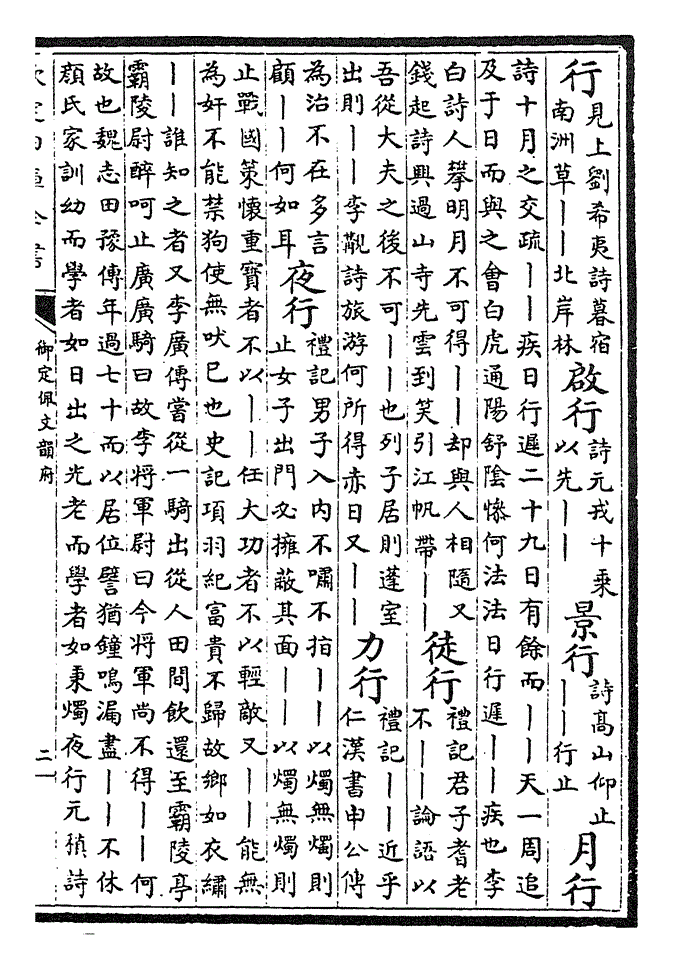 行
見上劉希夷詩暮宿
南洲草——北岸林
啟行
詩元戎十乘
以先——
景行
詩高山仰止
——行止
月行
詩十月之交疏——疾日行遲二十九日有餘而——天一周追
及于日而與之會白虎通陽舒陰慘何法法日行遲——疾也李
白詩人攀明月不可得——却與人相隨又
錢起詩興過山寺先雲到笑引江帆帶——
徒行
禮記君子耆老
不——論語以
吾從大夫之後不可——也列子居則蓬室
出則——李覯詩旅游何所得赤日又——
力行
禮記——近乎
仁漢書申公傳
為治不在多言
顧——何如耳
夜行
禮記男子入內不嘯不指——以燭無燭則
止女子出門必擁蔽其面——以燭無燭則
止戰國策懷重寶者不以——任大功者不以輕敵又——能無
為奸不能禁狗使無吠已也史記項羽紀富貴不歸故鄉如衣繡
——誰知之者又李廣傳嘗從一騎出從人田間飲還至霸陵亭
霸陵尉醉呵止廣廣騎曰故李將軍尉曰今將軍尚不得——何
故也魏志田豫傳年過七十而以居位譬猶鐘鳴漏盡——不休
顏氏家訓幼而學者如日出之光老而學者如秉燭夜行元稹詩
欽定四庫全書
御定佩文韻府
二一